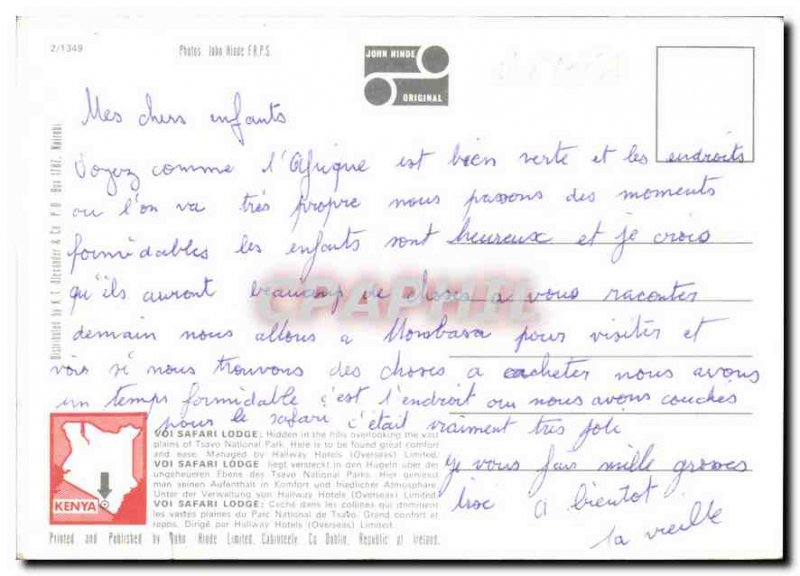 2/1349
Photos: John Hinde F.R.P.S.
JOHN HINDE
ORIGINAL
Mes chers enfants
Voyez comme l'Afrique est bien verte et les endroits
ou l'on va très propre nous passons des moments
formidables les enfants sont heureux et je crois
qu'ils auront beaucoup de choses a vous raconter
demain nous allons a Mombasa pour visiter et
voir si nous trouvons des choses a acheter nous avons
un temps formidable c'est l'endroit ou nous avons couchés
pour le safari c'était vraiment très joli
je vous fais mille grosses
a bientot
la vieille
CPAPHIL
Distributed by K. L. Alexander & Co. P.O. Box 1787, Nairobi
KENYA
VOI SAFARI LODGE: Hidden in the hills overlooking the vast
plains of Tsavo National Park. Here is to be found great comfort
and ease. Managed by Hallway Hotels (Overseas) Limited.
VOI SAFARI LODGE: liegt versteckt in den Hügeln über der
ungeheuren Ebene des Tsavo National Parks. Hier geniesst
man seinen Aufenthalt in Komfort und friedlicher Atmosphäre.
Unter der Verwaltung von Hallway Hotels (Overseas) Limited.
VOI SAFARI LODGE: Caché dans les collines qui dominent
les vastes plaines du Parc National de Tsavo. Grand confort et
repos. Dirigé par Hallway Hotels (Overseas) Limited.
Printed and Published by John Hinde Limited, Cabinteely, Co Dublin, Republic of Ireland.